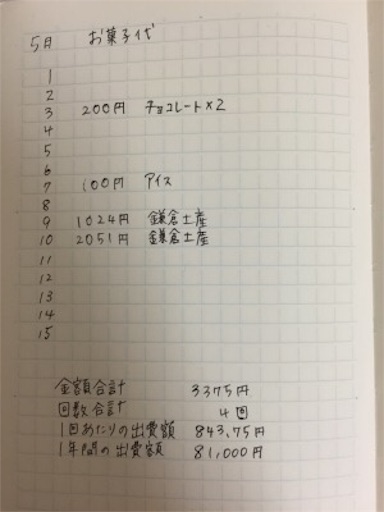 5月 お菓子代
1
2
3 200円 チョコレート×2
4
5
6
7 100円 アイス
8
9 1024円 鎌倉土産
10 2051円 鎌倉土産
11
12
13
14
15
金額合計 3375円
回数合計 4回
1回あたりの出費額 843.75円
1年間の出費額 81,000円